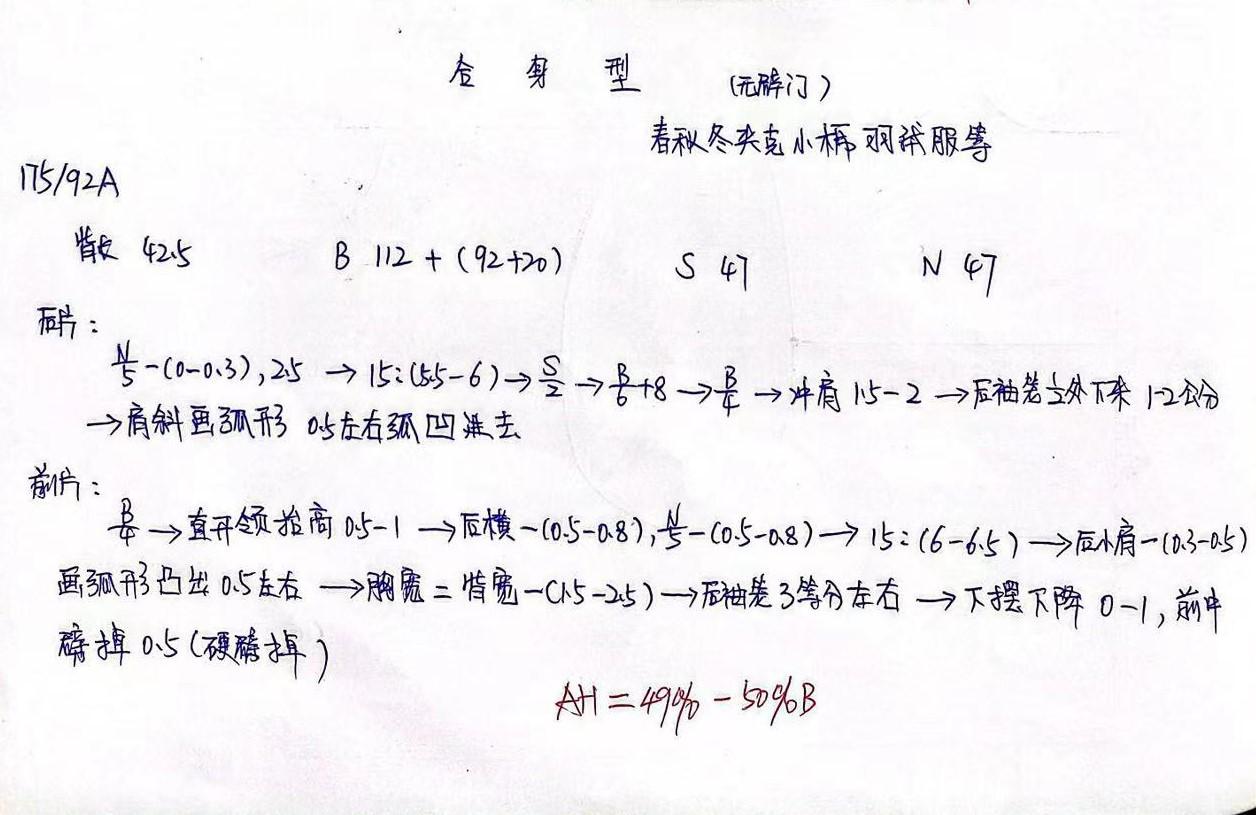 合身型 (无劈门)
春秋冬夹克小棉羽绒服等
175/92A
背长 42.5 B 112 + (92+20) S 47 N 47
后片:
N/5-(0-0.3), 2.5 → 15:(5.5-6) → S/2 → B/6+8 → B/4 → 冲肩 1.5-2 → 后袖笼 1/2处下来 1-2公分
→ 肩斜画弧形 0.5左右弧凹进去
前片:
B/4 → 直开领抬高 0.5-1 → 后横-(0.5-0.8), N/5-(0.5-0.8) → 15:(6-6.5) → 后小肩-(0.3-0.5)
画弧形凸出 0.5左右 → 胸宽=背宽-(1.5-2.5) → 后袖笼3等分左右 → 下摆下降 0-1, 前中
劈掉 0.5 (硬劈掉)
AH=49%-50%B